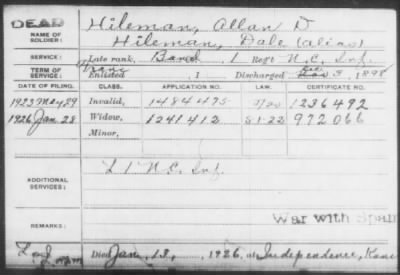 DEAD
NAME OF SOLDIER: Hileman, Allan D
Hileman, Dale (alias)
SERVICE: Late rank, Band 1 Reg't N.C. Inf.
TERM OF SERVICE: Enlisted , 1 Discharged 3, 1898
DATE OF FILING. CLASS. APPLICATION NO. LAW. CERTIFICATE NO.
1923 May 29 Invalid, 1484475 1236492
1926 Jan 28 Widow, 1241412 5-1-22 972066
Minor,
ADDITIONAL SERVICES: L 1 N.C. Inf.
War with Spain
REMARKS:
Died Jan. 13, 1926, at Independence, Kans